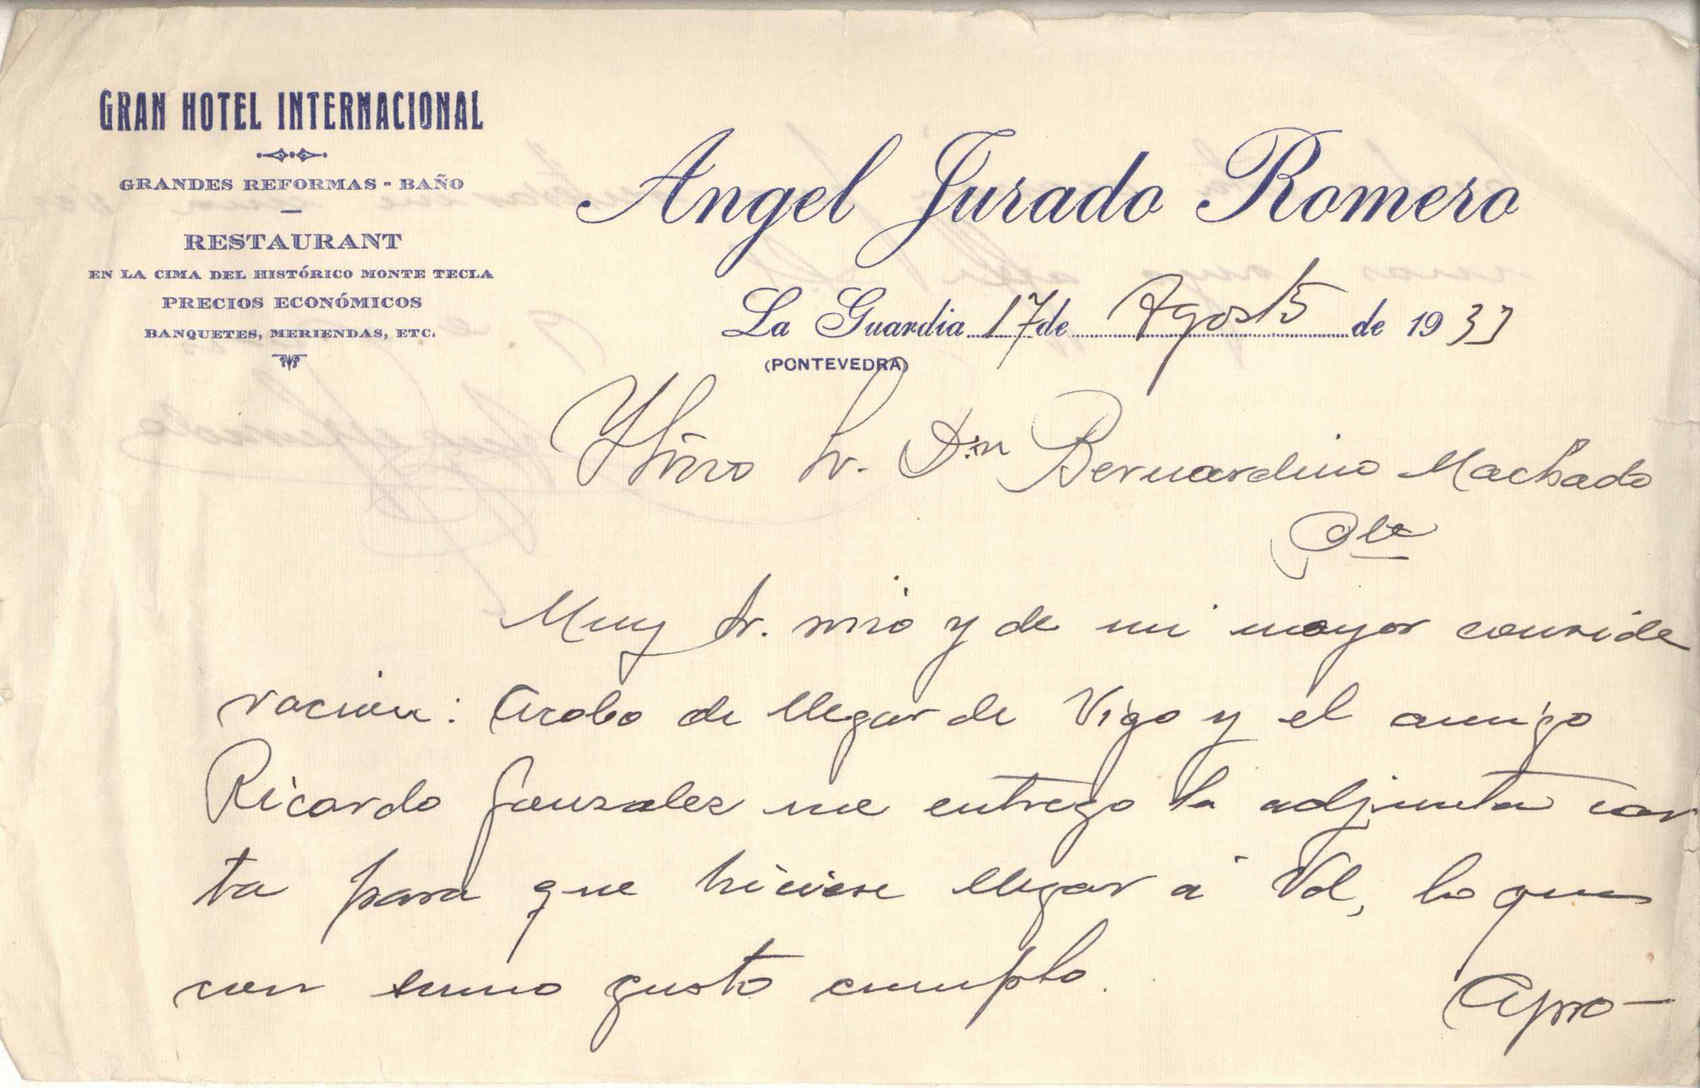 GRAN HOTEL INTERNACIONAL
GRANDES REFORMAS - BAÑO
RESTAURANT
EN LA CIMA DEL HISTÓRICO MONTE TECLA
PRECIOS ECONÓMICOS
BANQUETES, MERIENDAS, ETC.
Angel Jurado Romero
La Guardia 17 de Agosto de 1933
(PONTEVEDRA)
Iltmo Sr. Dn Bernardino Machado
Pte
Muy Sr. mio y de mi mayor conside
racion: Acabo de llegar de Vigo y el amigo
Ricardo Gonzalez me entrego la adjunta car
ta para que hiciese llegar a Vd, lo que
con sumo gusto cumplo.
Apro-